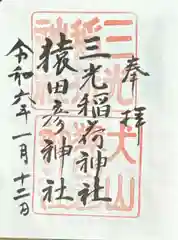 奉拝
三光稲荷神社
猿田彦神社
令和六年一月十二日
三光
犬山